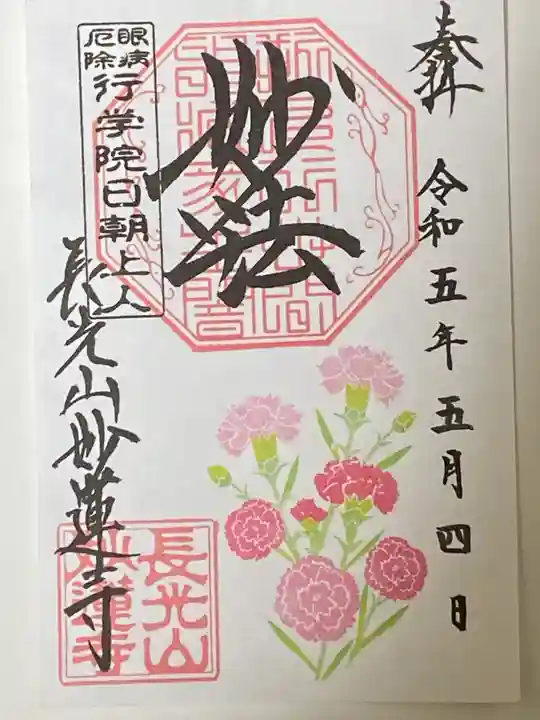 奉拝
令和五年五月四日
妙法
眼病
厄除
行学院日朝上人
長光山妙蓮寺
長光山
妙蓮寺